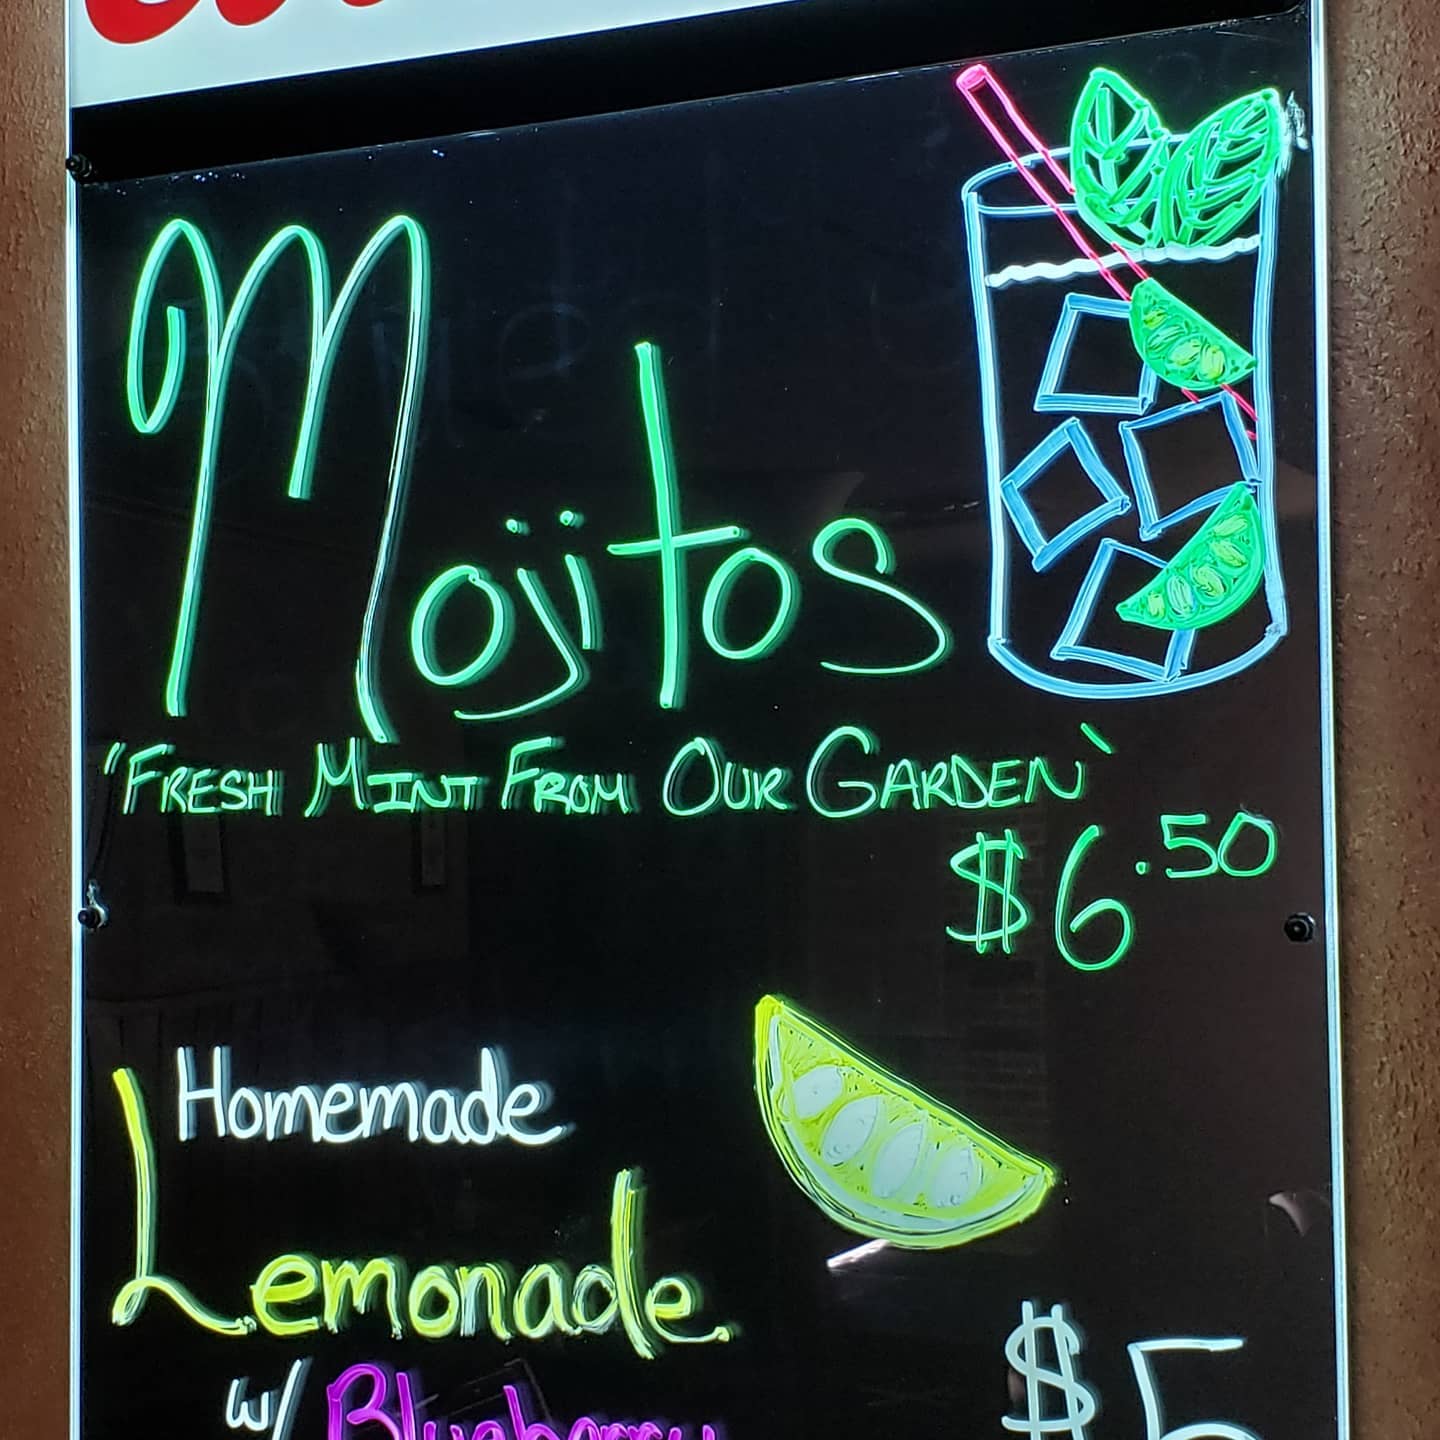 Mojitos
"Fresh Mint From Our Garden"
$6.50
Homemade
Lemonade
w/ Blueberry
$5